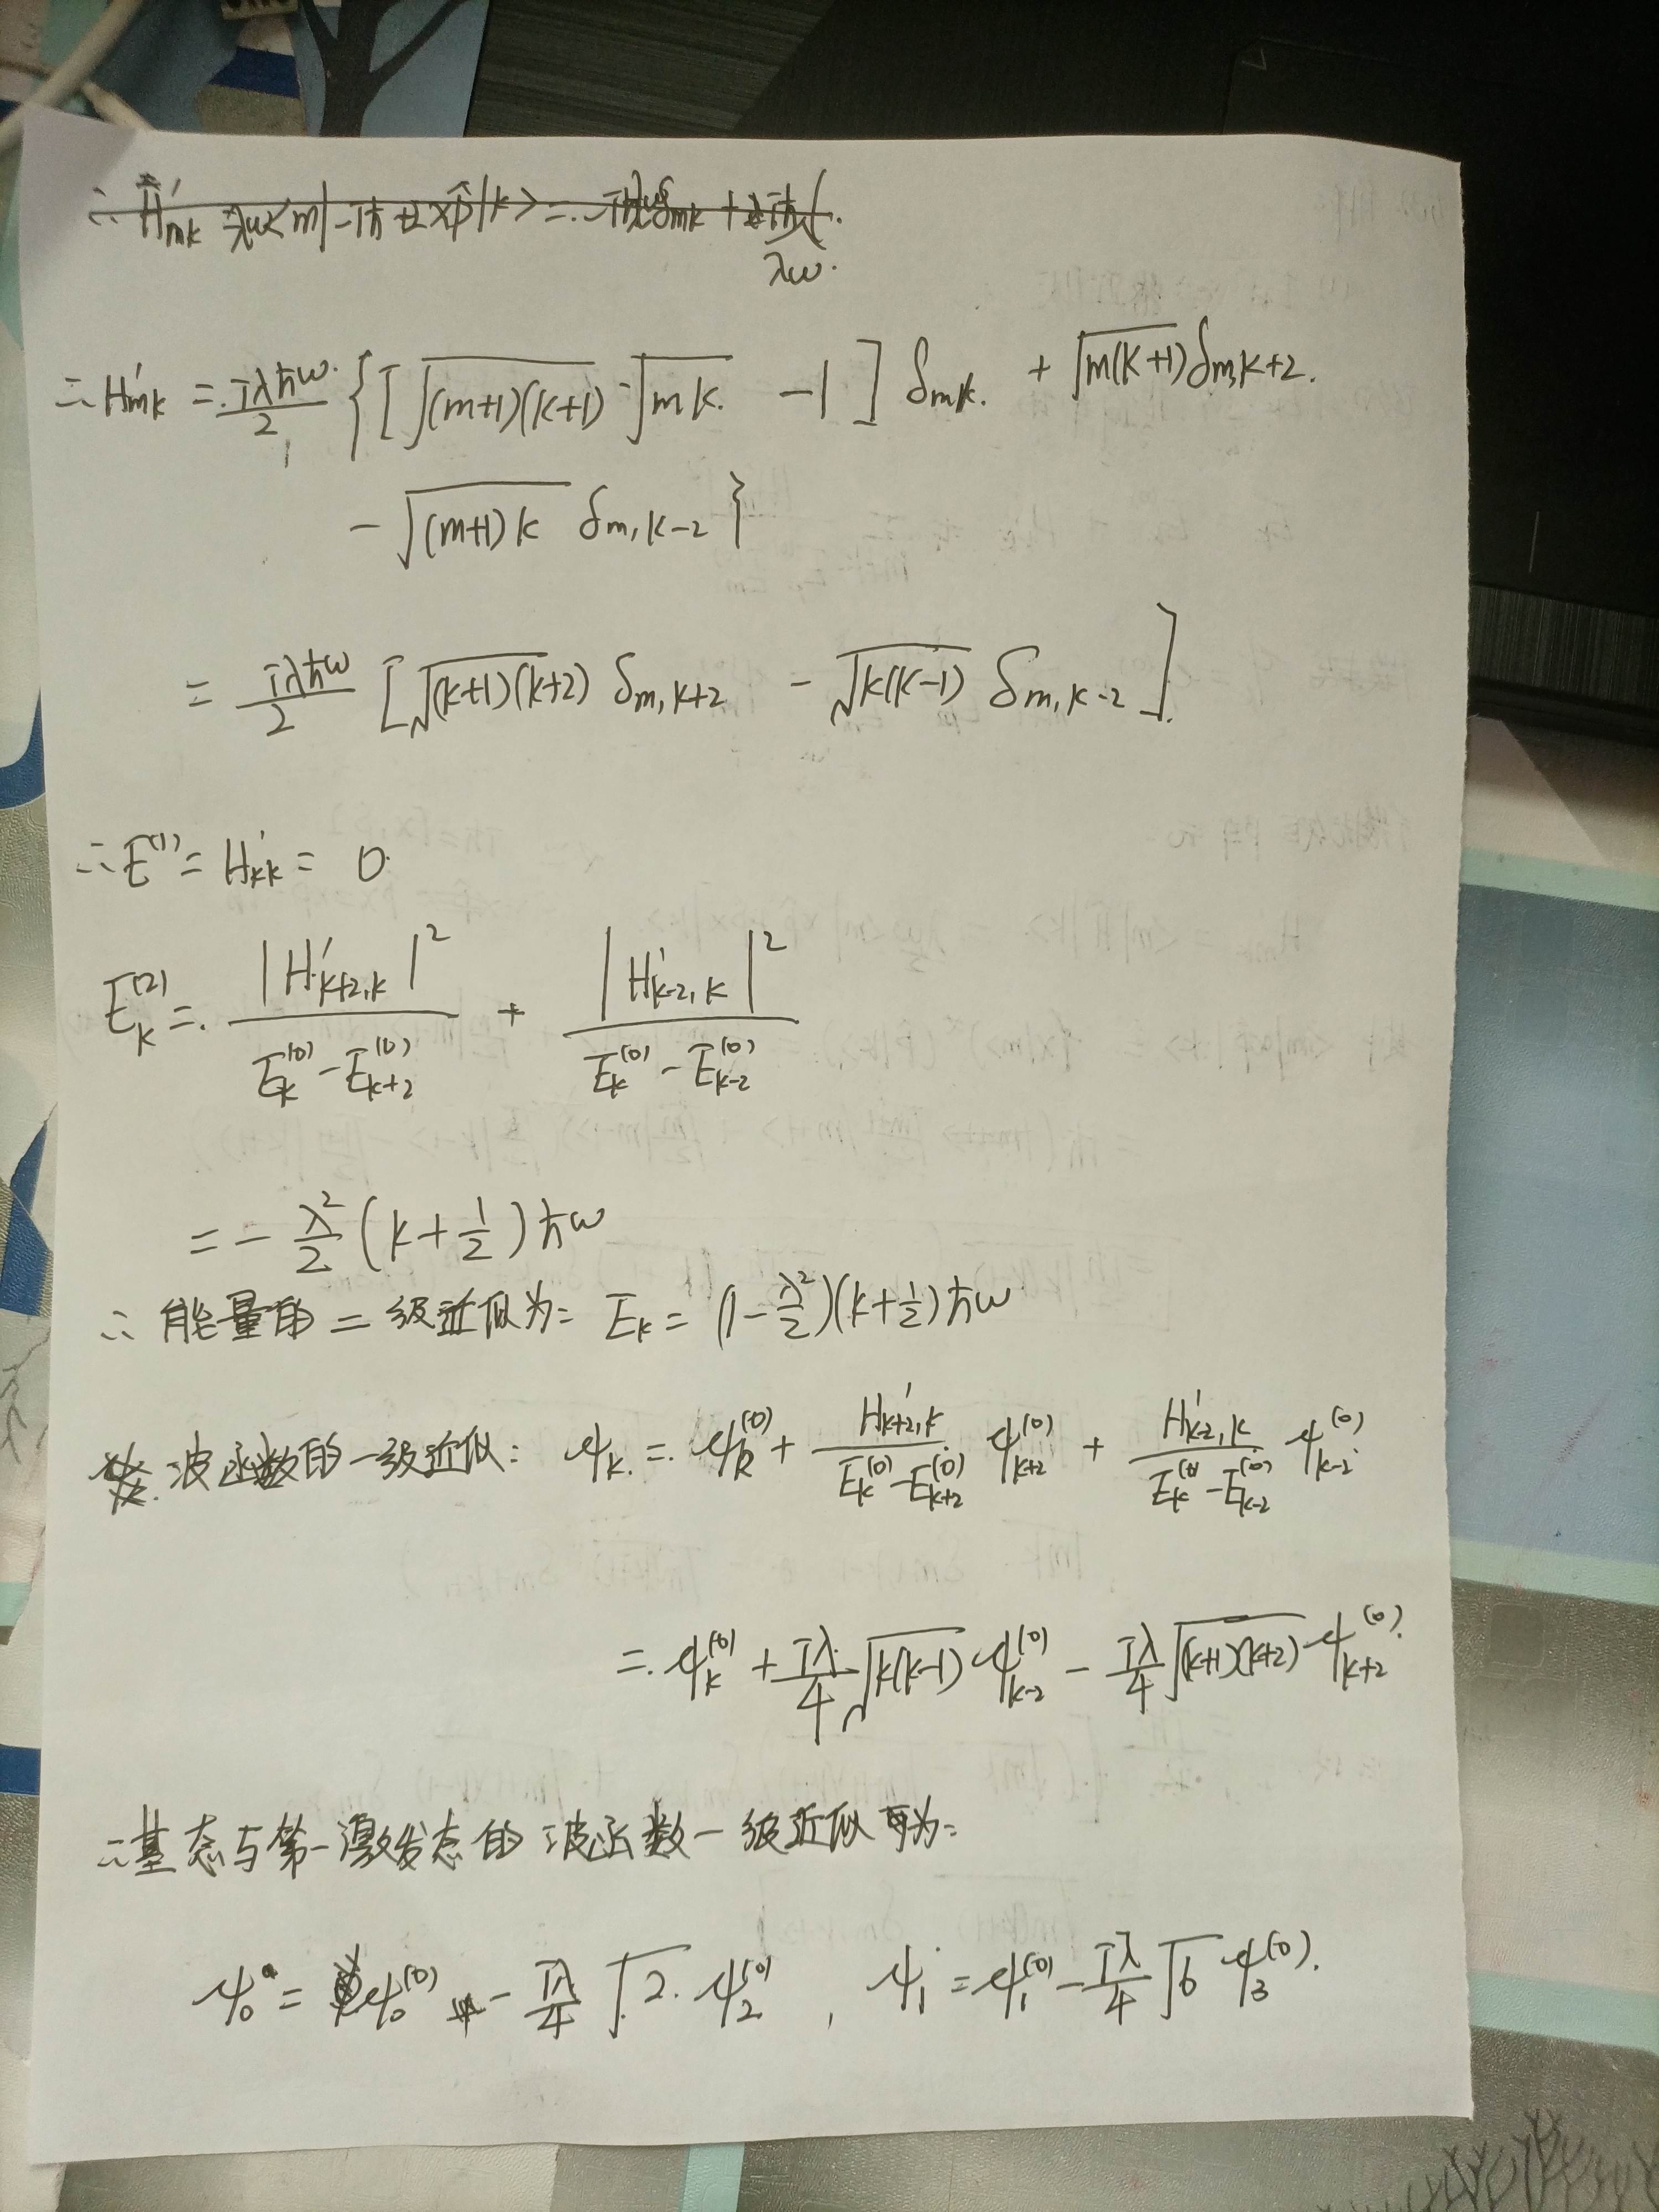 ∴ H'mk = iλħω/2 { [ √(m+1)(k+1) - √mk - 1 ] δmk + √m(k+1) δm,k+2
- √(m+1)k δm,k-2 }
= iλħω/2 [ √(k+1)(k+2) δm,k+2 - √k(k-1) δm,k-2 ]
∴ E⁽¹⁾ = H'kk = 0
Ek⁽²⁾ = |H'k+2,k|² / (Ek⁽⁰⁾ - Ek+2⁽⁰⁾) + |H'k-2,k|² / (Ek⁽⁰⁾ - Ek-2⁽⁰⁾)
= - λ²/2 (k+1/2) ħω
∴ 能量的二级近似为: Ek = (1 - λ²/2)(k+1/2) ħω
波函数的一级近似: ψk = ψk⁽⁰⁾ + H'k+2,k / (Ek⁽⁰⁾ - Ek+2⁽⁰⁾) ψk+2⁽⁰⁾ + H'k-2,k / (Ek⁽⁰⁾ - Ek-2⁽⁰⁾) ψk-2⁽⁰⁾
= ψk⁽⁰⁾ + iλ/4 √k(k-1) ψk-2⁽⁰⁾ - iλ/4 √(k+1)(k+2) ψk+2⁽⁰⁾
∴ 基态与第一激发态的波函数一级近似为:
ψ0 = ψ0⁽⁰⁾ - iλ/4 √2 ψ2⁽⁰⁾ , ψ1 = ψ1⁽⁰⁾ - iλ/4 √6 ψ3⁽⁰⁾.